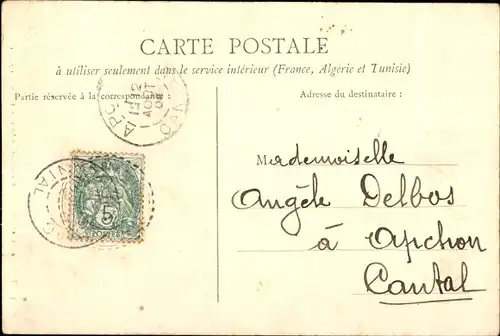 CARTE POSTALE
à utiliser seulement dans le service intérieur (France, Algérie et Tunisie)
Partie réservée à la correspondance :
Adresse du destinataire :
Mademoiselle
Angèle Delbos
à Apchon
Cantal
5
POSTES
CANTAL